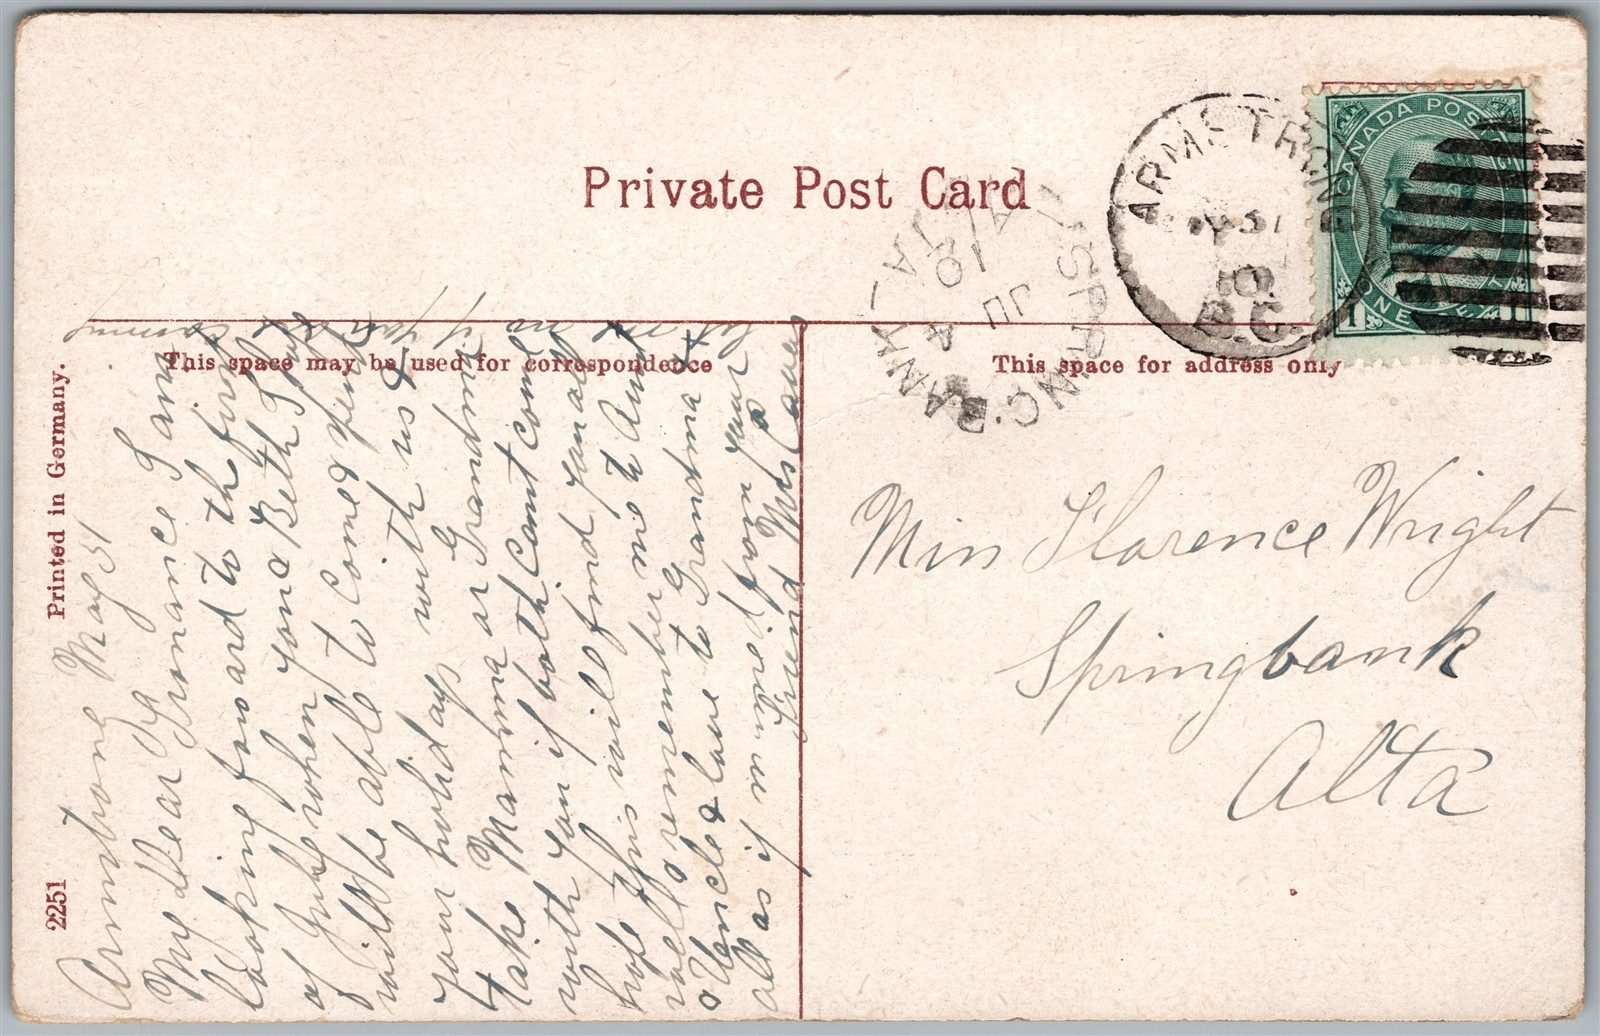 Private Post Card
This space may be used for correspondence
This space for address only
Printed in Germany.
2251
ARMSTRONG
31
10
B.C.
SPRING BANK
ALTA
JU
4
10
CANADA POSTAGE
ONE CENT
1
Miss Florence Wright
Springbank
Alta
Armstrong May 31
My dear Florence I am
looking forward to the first
of July when you & Beth I hope
will be able to come & spend
your holidays with us &
take Mamma or Grandma
with you if both cant come
hope this will find you all
well remember me to Aunt
& Uncle & love to Grandma &
all as if mentioned from your
friend Mrs
let me no if you are
coming